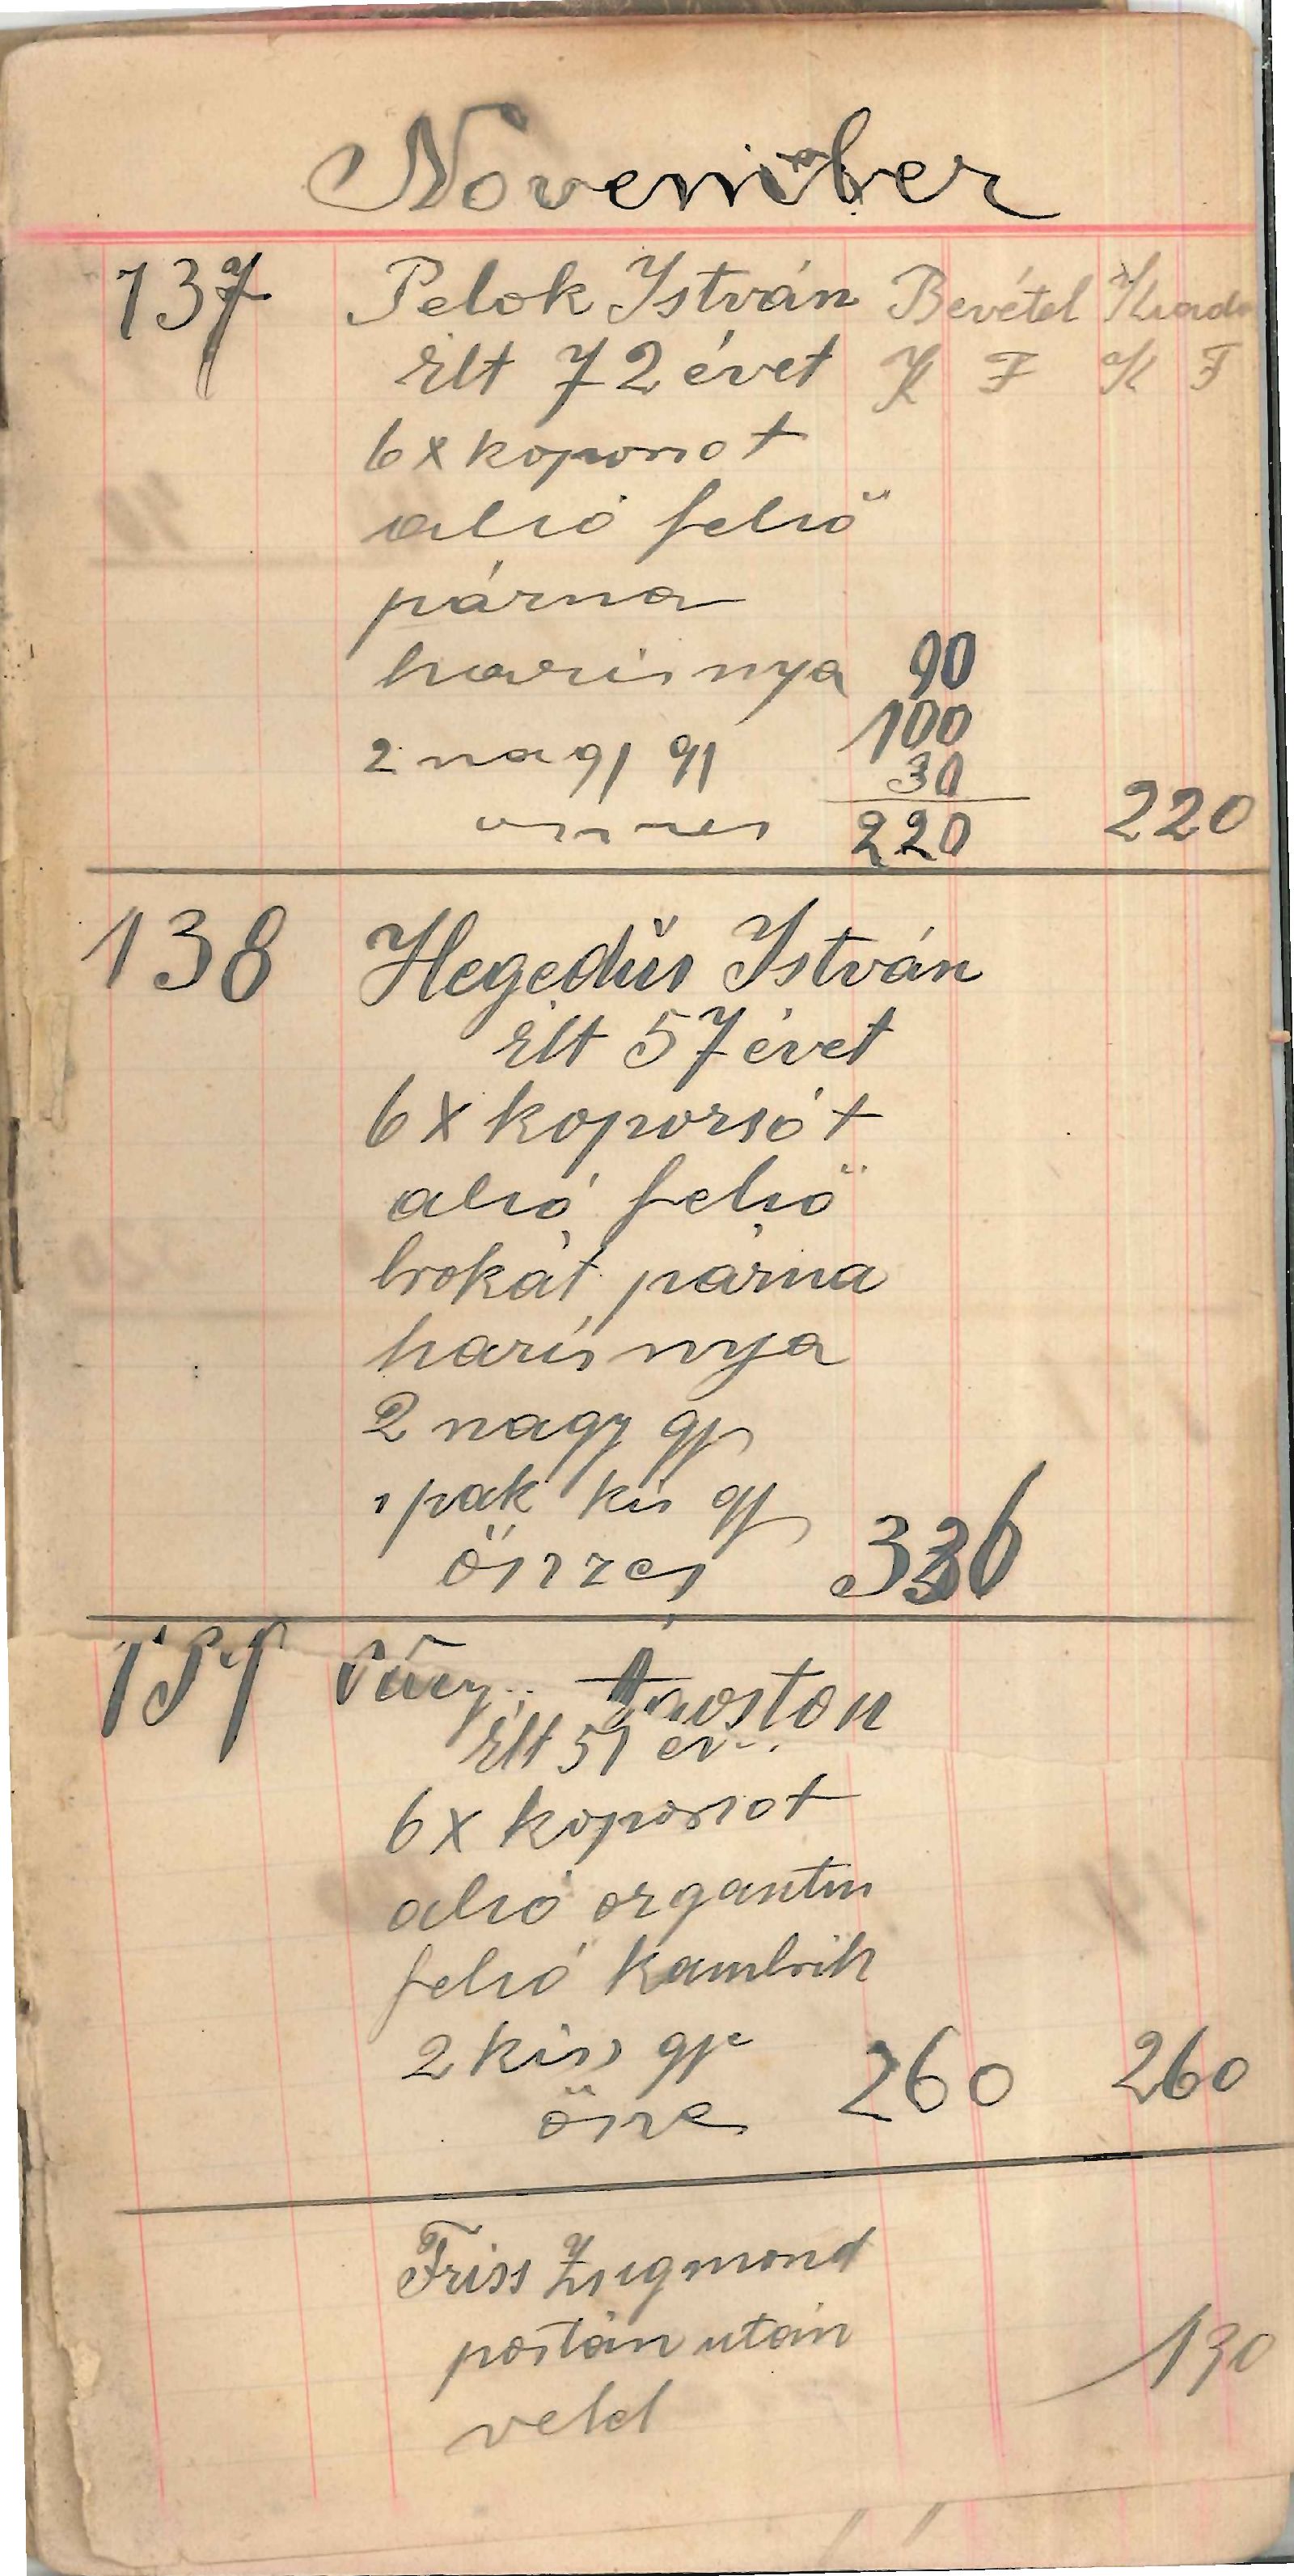 November
137 Pelok István Bevétel Kiadá
élt 72 évet K F K F
6 x koporsot
alsó felső
párna
harisnya 90
100
2 nagy gy
30
összes 220 220
138 Hegedüs István
élt 57 évet
6 x koporsót
alsó felső
brokát párna
harisnya
2 nagy gy
1 pak kis gy
összes 336
Ágoston
élt 51 év
6 x koporsot
alsó organtin
felső kambrik
2 kiss gy
össze 260 260
Friss Zsigmond
postánután
véld 130